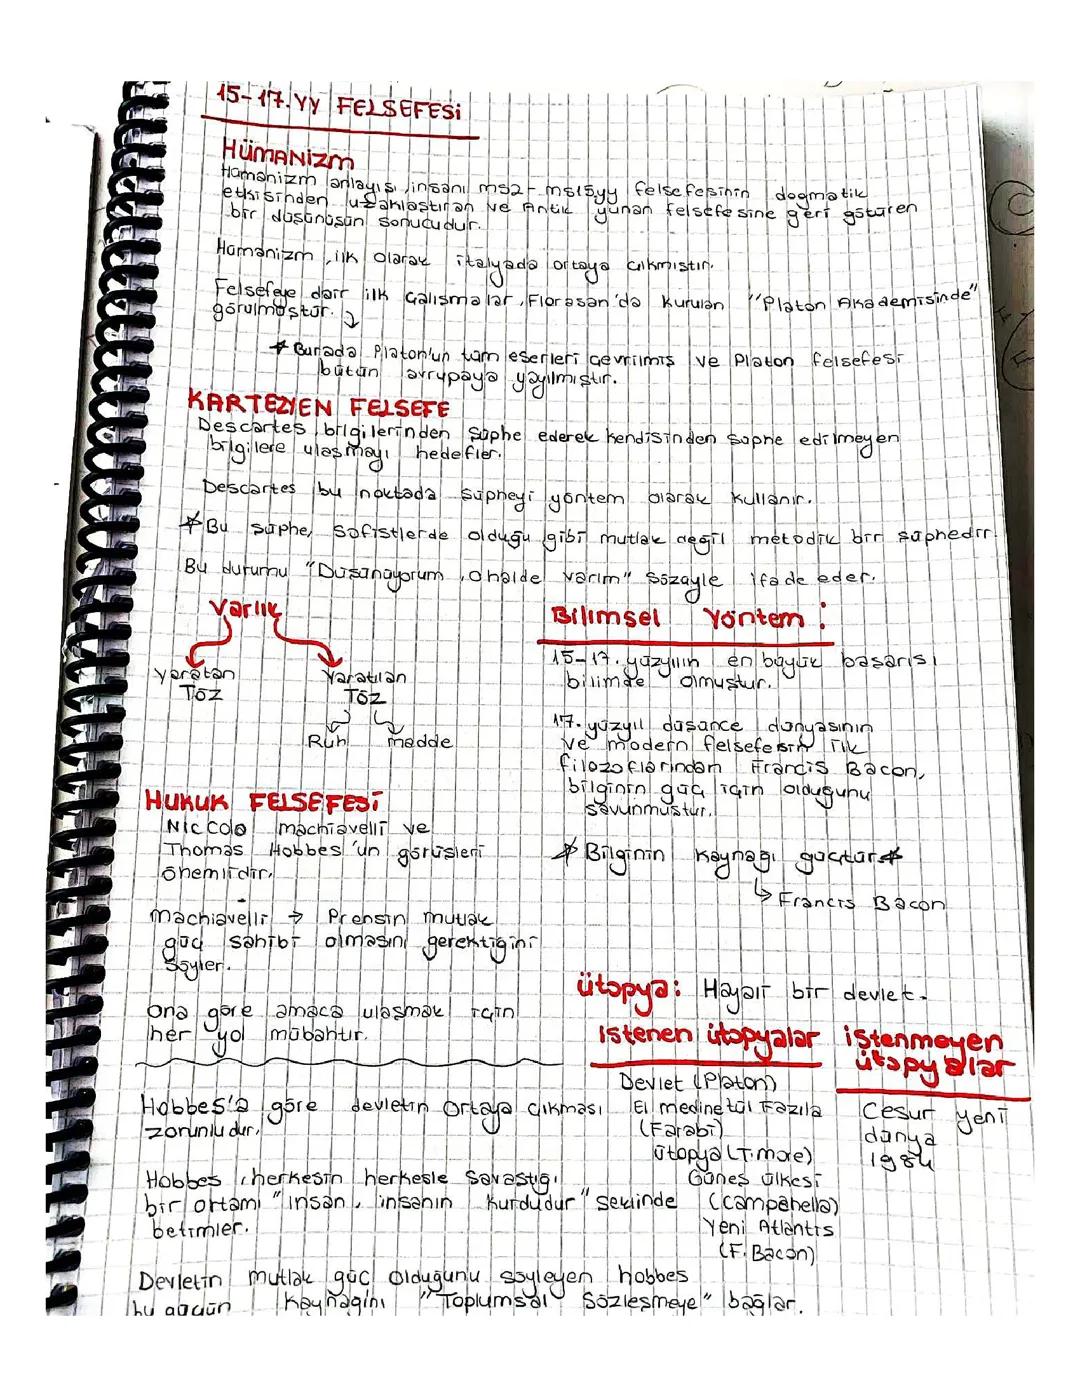 15-17.YY FELSEFESİ
HÜMANİZM
Hümanizm anlayışı, insanı ms2-ms15yy felsefesinin dogmatik
etkisinden uzaklaştıran ve Antik yunan felsefesine geri götüren
bir düşünüşün sonucudur.
Hümanizm, ilk olarak italyada ortaya çıkmıştır.
Felsefeye dair ilk çalışmalar, Florasan'da kurulan "Platon Akademisinde"
görülmüştür.
* Burada Platon'un tüm eserleri çevrilmiş ve Platon felsefesi
bütün avrupaya yayılmıştır.
KARTEZYEN FELSEFE
Descartes, bilgilerinden şüphe ederek kendisinden şüphe edilmeyen
bilgilere ulaşmayı hedefler.
Descartes bu noktada şüpheyi yöntem olarak kullanır.
* Bu şüphe, Sofistlerde olduğu gibi mutlak değil metodik bir şüphedir.
Bu durumu "Düşünüyorum, o halde varım" sözüyle ifade eder.
Varlık
yaratan
Töz
Yaratılan
Töz
Ruh madde
Bilimsel Yöntem:
15-17. yüzyılın en büyük başarısı
bilimde olmuştur.
17. yüzyıl düşünce dünyasının
ve modern felsefesin ilk
filozoflarından Francis Bacon,
bilginin güç için olduğunu
savunmuştur.
* Bilginin kaynağı güçtür *
↳ Francis Bacon
HUKUK FELSEFESİ
Niccolo machiavelli ve
Thomas Hobbes'un görüşleri
önemlidir.
machiavelli → Prensin mutlak
güç sahibi olmasını gerektiğini
söyler.
Ona göre amaca ulaşmak için
her yol mübahtır.
Hobbes'a göre devletin ortaya çıkması
zorunludur.
Hobbes, herkesin herkesle savaştığı
bir ortamı "insan, insanın kurdudur" şeklinde
betimler.
Devletin mutlak güç olduğunu söyleyen hobbes
bu gücün kaynağını "Toplumsal Sözleşmeye" bağlar.
ütopya: Hayali bir devlet.
istenen ütopyalar
Devlet (Platon)
El medinetül Fazıla
(Farabi)
ütopya (T.more)
Güneş ülkesi
(Campanella)
Yeni Atlantis
(F. Bacon)
istenmeyen
ütopyalar
Cesur yeni
dünya
1984